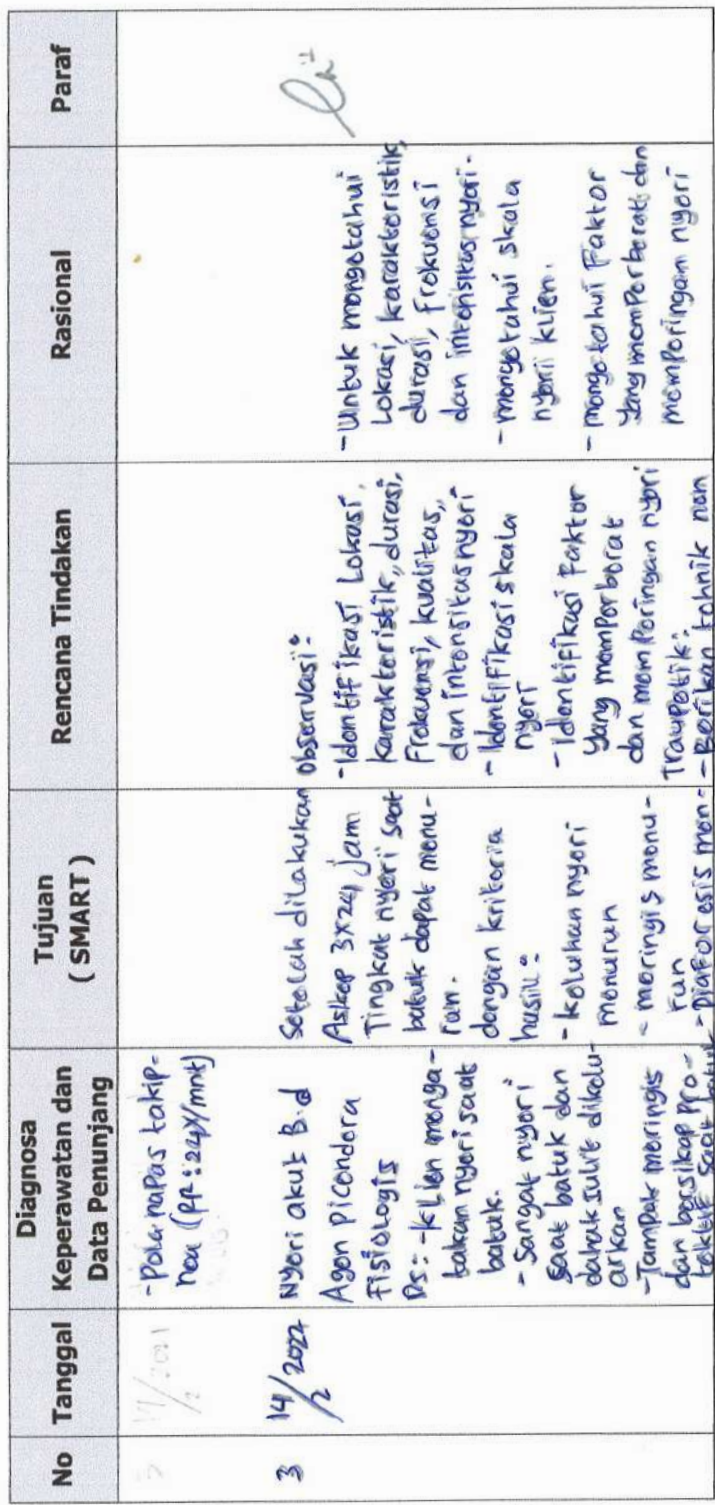 No
Tanggal
Diagnosa
Keperawatan dan
Data Penunjang
Tujuan
( SMART )
Rencana Tindakan
Rasional
Paraf
- Pola napas takip-
nea (RR : 24x/mnt)
3
14/2 2022
Nyeri akut B.d
Agen picendera
Fisiologis
Ds: - Klien menga-
takan nyeri saat
batuk.
- Sangat nyeri
saat batuk dan
dahak sulit dikelu-
arkan
- Tampak meringis
dan bersikap pro-
tektif saat batuk
Setelah dilakukan
Askep 3x24 jam
Tingkat nyeri saat
batuk dapat menu-
run.
dengan kriteria
hasil:
- keluhan nyeri
menurun
- meringis menu-
run
- Diaforesis men-
Observasi:
- Identifikasi Lokasi,
karakteristik, durasi,
Frekuensi, kualitas,
dan intensitas nyeri
- Identifikasi skala
nyeri
- Identifikasi Faktor
yang memperberat
dan memperingan nyeri
Traupetik:
- Berikan tehnik non
- Untuk mengetahui
Lokasi, karakteristik,
durasi, Frekuensi
dan intensitas nyeri.
- mengetahui skala
nyeri klien.
- mengetahui Faktor
yang memperberat dan
memperingan nyeri